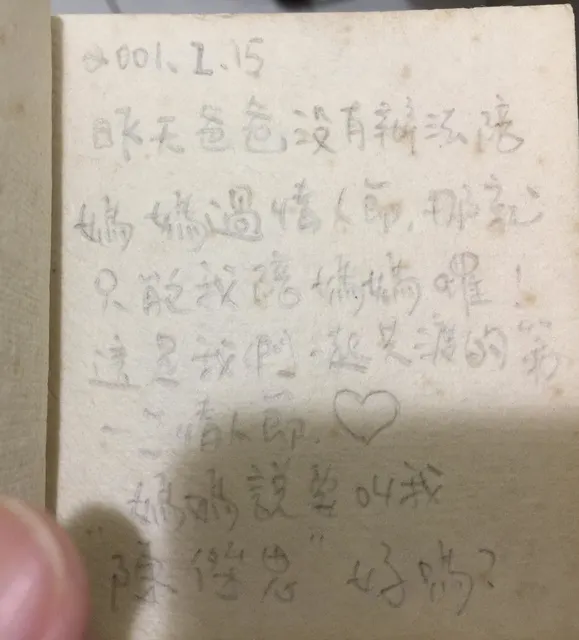 2001.2.15
昨天爸爸沒有辦法陪
媽媽過情人節,那就
只能我陪媽媽囉!
這是我們一起共渡的第
一個情人節.♡
媽媽說要叫我
"陳" 好嗎?